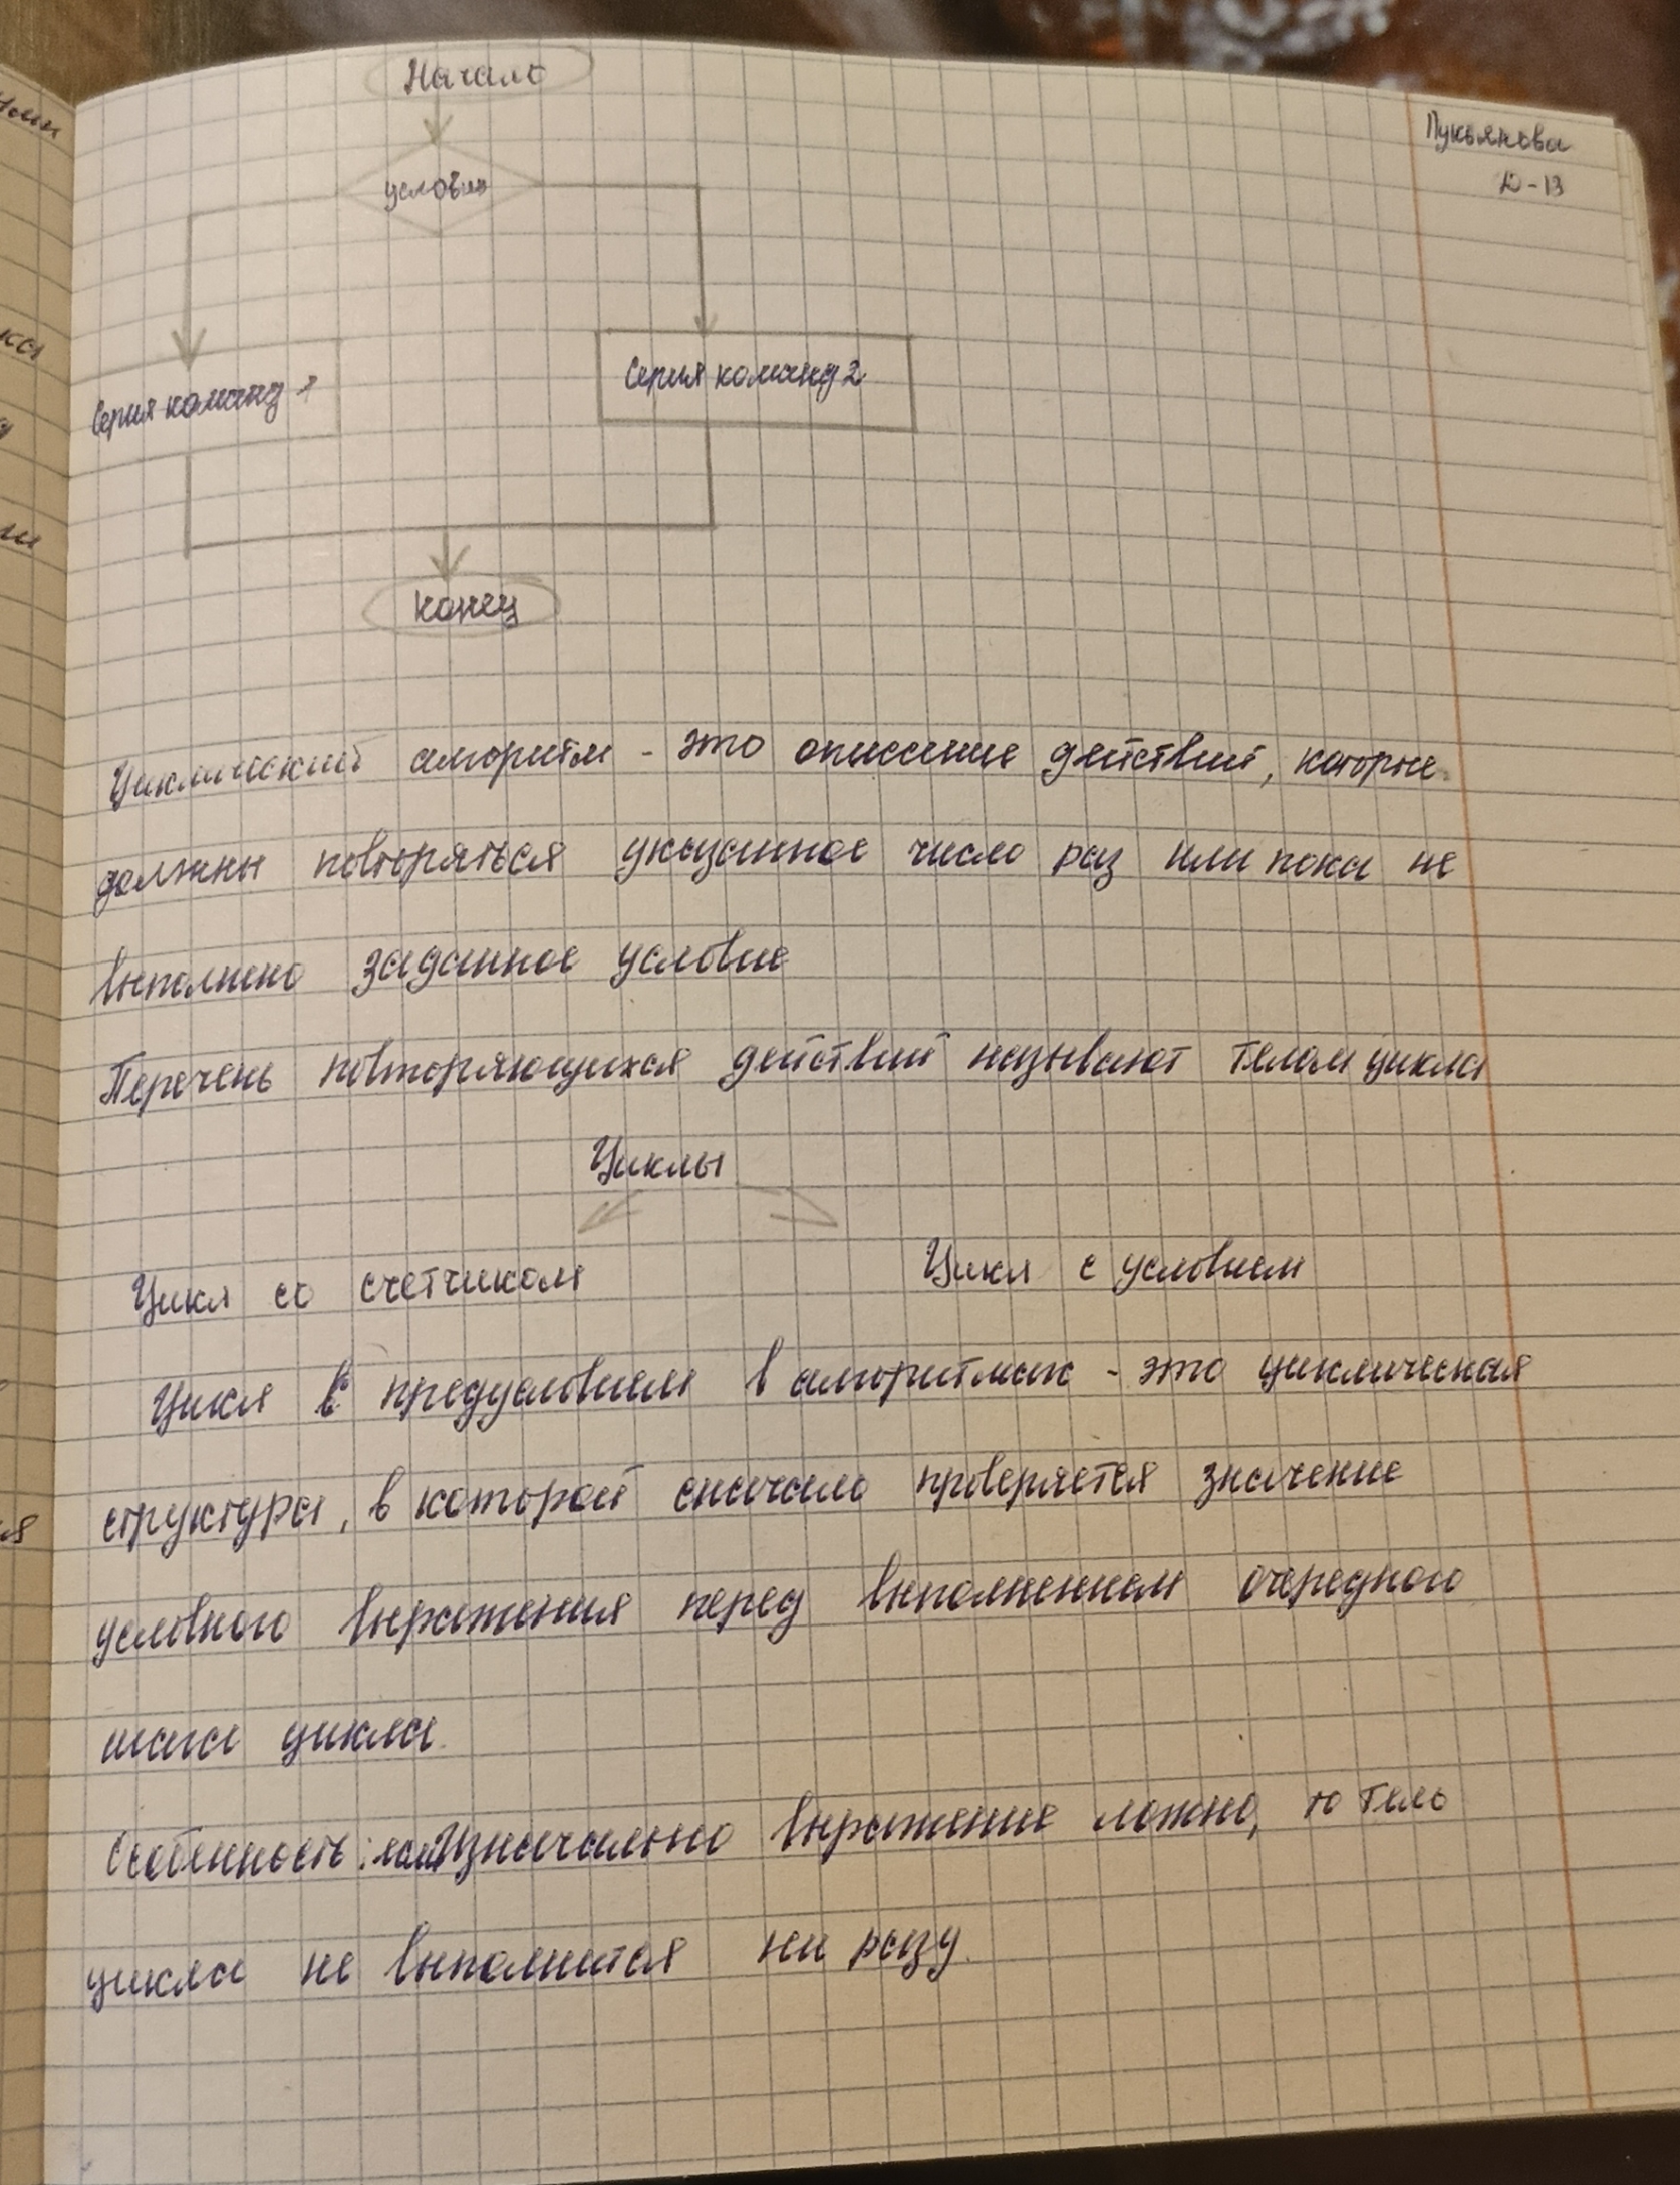 Начало
Лукьянова
Ю-13
условие
Серия команд 1
Серия команд 2
конец
Циклический алгоритм - это описание действий, которые
должны повторяться указанное число раз или пока не
выполнено заданное условие
Перечень повторяющихся действий называют телом цикла
Циклы
Цикл со счетчиком
Цикл с условием
Цикл с предусловием в алгоритмах - это циклическая
структура, в которой сначало проверяется значение
условного выражения перед выполнением очередного
шага цикла.
Особенность: если изначально выражение ложно, то тело
цикла не выполнится ни разу.